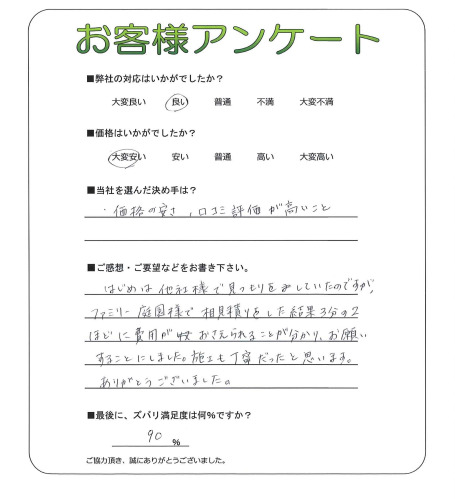 お客様アンケート
■弊社の対応はいかがでしたか？
大変良い 良い 普通 不満 大変不満
■価格はいかがでしたか？
大変安い 安い 普通 高い 大変高い
■当社を選んだ決め手は？
・価格の安さ、口コミ評価が高いこと
■ご感想・ご要望などをお書き下さい。
はじめは他社様で見つもりをしていたのですが、
ファミリー庭園様で相見積りをした結果3分の2
ほどに費用がおさえられることが分かり、お願い
することにしました。施工も丁寧だったと思います。
ありがとうございました。
■最後に、ズバリ満足度は何%ですか？
90 %
ご協力頂き、誠にありがとうございました。